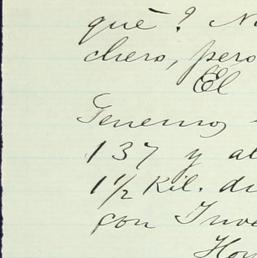 qué? No
chero, pero
El
Tenemos
137 y al
1½ Kil. di
con Inve
Hoy